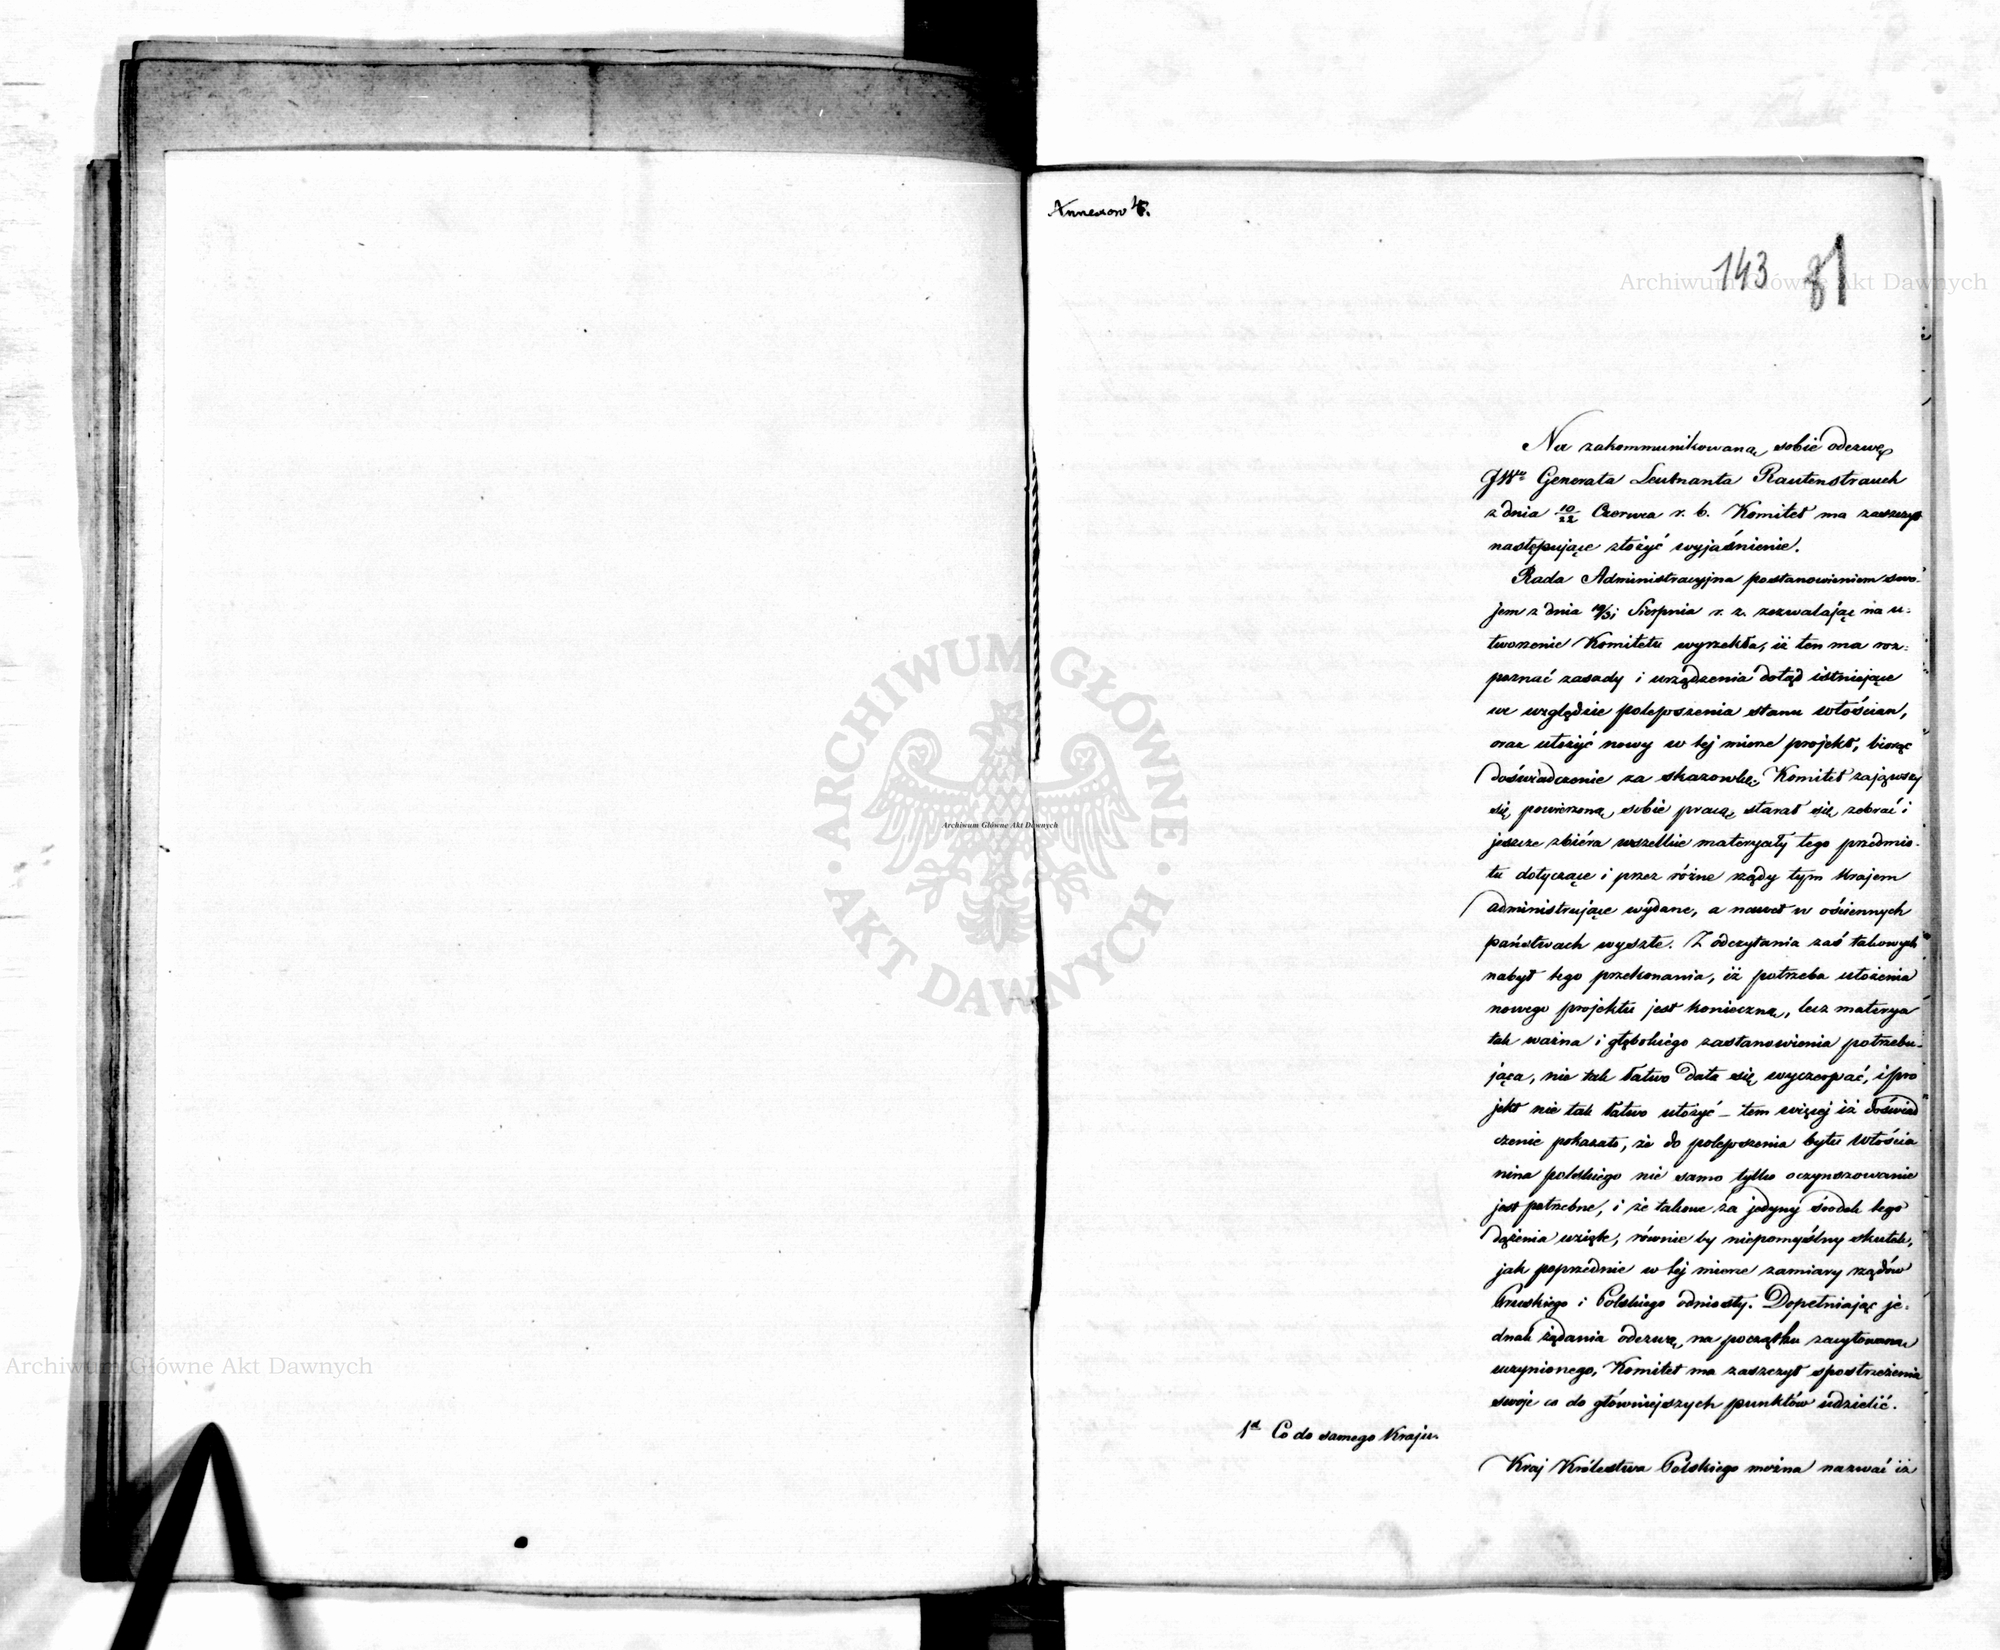 Annexow 4.
143 81
Na zakommunikowaną sobie odezwę
JWo Generała Leutnanta Rautenstrauch
z dnia 10/22 Czerwca r. b. Komitet ma zaszczyt
następujące złożyć wyjaśnienie.
Rada Administracyjna postanowieniem swo-
jem z dnia 19/31 Sierpnia r. z. zezwalając na u-
tworzenie Komitetu wyrzekła, iż ten ma roz-
poznać zasady i urządzenia dotąd istniejące
we względzie polepszenia stanu włościan,
oraz ułożyć nowy w tej mierze projekt, biorąc
doświadczenie za skazowkę; Komitet zająwszy
się powierzoną sobie pracą starał się zebrać i
jeszcze zbiéra wszelkie materyały tego przedmio-
tu dotyczące i przez różne rządy tym krajem
administrujące wydane, a nawet w ościennych
państwach wyszłe. Z odczytania zaś takowych
nabył tego przekonania, iż potrzeba ułożenia
nowego projektu jest konieczną, lecz materya
tak ważna i głębokiego zastanowienia potrzebu-
jąca, nie tak łatwo dała się wyczerpać, i pro
jekt nie tak łatwo ułożyć – tem więcej iż doświad
czenie pokazało, że do polepszenia bytu włościa
nina polskiego nie samo tylko oczynszowanie
jest potrzebne, i że takowe za jedyny środek tego
dążenia wzięte, równie by niepomyślny skutek,
jak poprzednie w tej mierze zamiary rządów
Pruskiego i Polskiego odniosły. Dopełniając je-
dnak żądania odezwą na początku zacytowaną
uczynionego, Komitet ma zaszczyt spostrzeżenia
swoje co do główniejszych punktów udzielić.
1d Co do samego Kraju.
Kraj Królestwa Polskiego można nazwać iż
Archiwum Główne Akt Dawnych
Archiwum Główne Akt Dawnych
Archiwum Główne Akt Dawnych
ARCHIWUM GŁÓWNE · AKT DAWNYCH ·